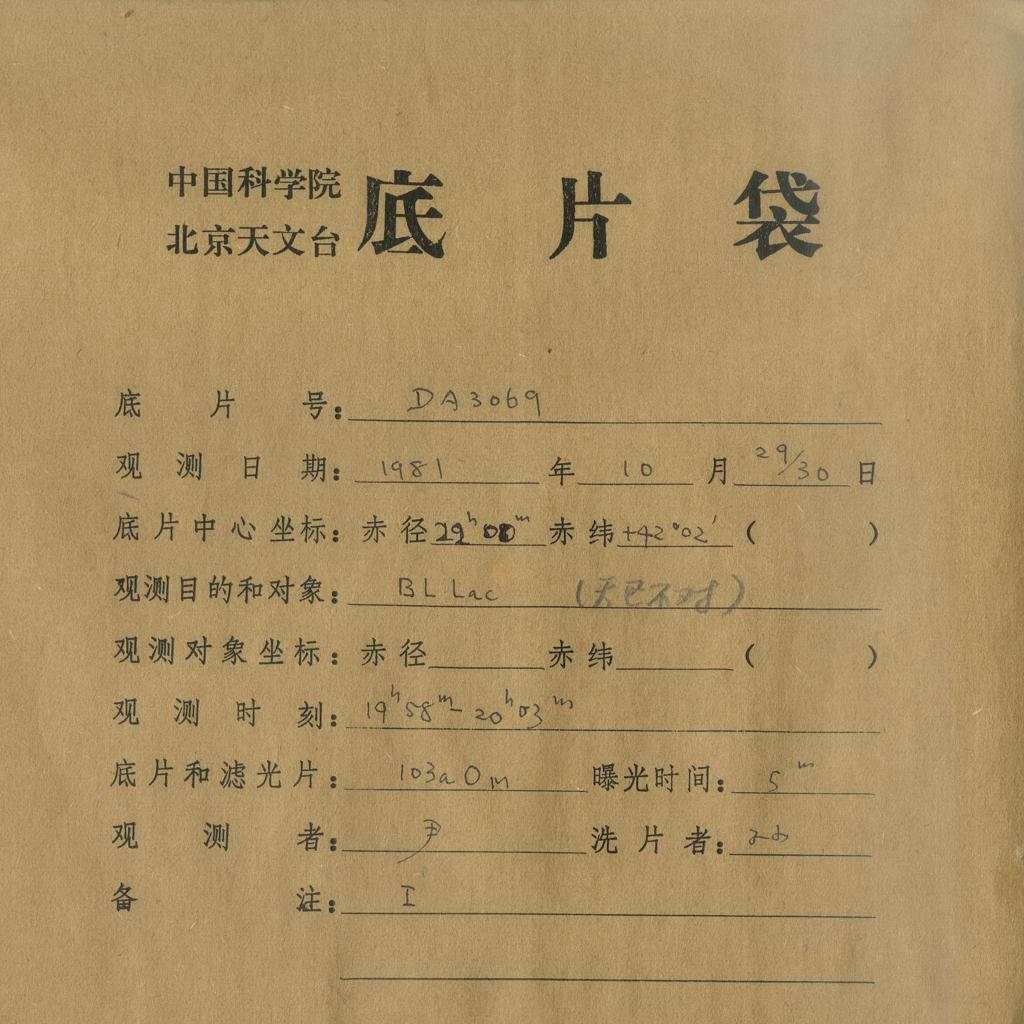 中国科学院
北京天文台 底片袋
底片号： DA3069
观测日期： 1981 年 10 月 29/30 日
底片中心坐标：赤径 22ʰ00ᵐ 赤纬 +42°02′ （ ）
观测目的和对象： BL Lac （天区不对）
观测对象坐标：赤径 赤纬 （ ）
观测时刻： 19ʰ58ᵐ-20ʰ03ᵐ
底片和滤光片： 103aO m 曝光时间： 5ᵐ
观测者： 尹 洗片者：
备注： I